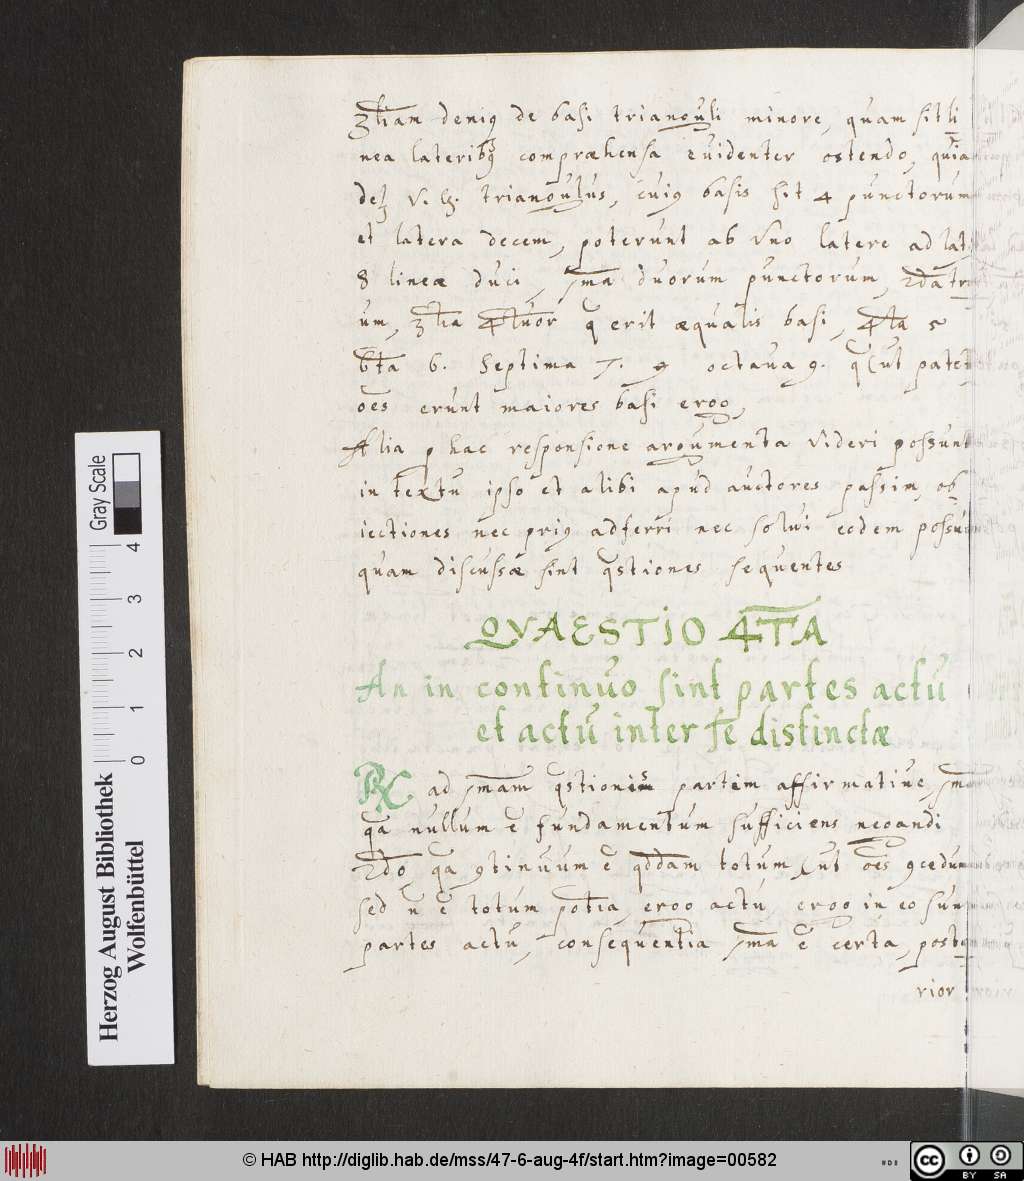 3tiam deniq de basi trianguli minore, quam sit li
nea laterib9 compræhensa evidenter ostendo, quia
det v. g. triangulus, cui9 basis sit 4 punctorum
et latera decem, poterunt ab vno latere ad lat
8 lineæ duci, 1ma duorum punctorum, 2da tri
um, 3tia 4tuor q erit æqualis basi, 4ta 5
6ta 6. Septima 7. octava 9. ut patet
oes erunt maiores basi ergo,
Alia p hac responsione argumenta videri possunt
in textu ipso et alibi apud auctores passim, ob
iectiones nec pri9 adferri nec solvi eodem possu
quam discussæ sint qstiones sequentes
QVAESTIO 4TA
An in continuo sint partes actu
et actu inter se distinctæ
Rx ad 1mam qstionis partem affirmative, 1m
qa nullum e fundamentum sufficiens negandi
2do qa 9tinuum e qddam totum ut oes 9cedu
sed n e totum potia, ergo actu, ergo in eo sun
partes actu, consequentia 1ma e certa, post
rior
Gray Scale
4
3
2
1
0
Herzog August Bibliothek
Wolfenbüttel
© HAB http://diglib.hab.de/mss/47-6-aug-4f/start.htm?image=00582
cc
BY SA